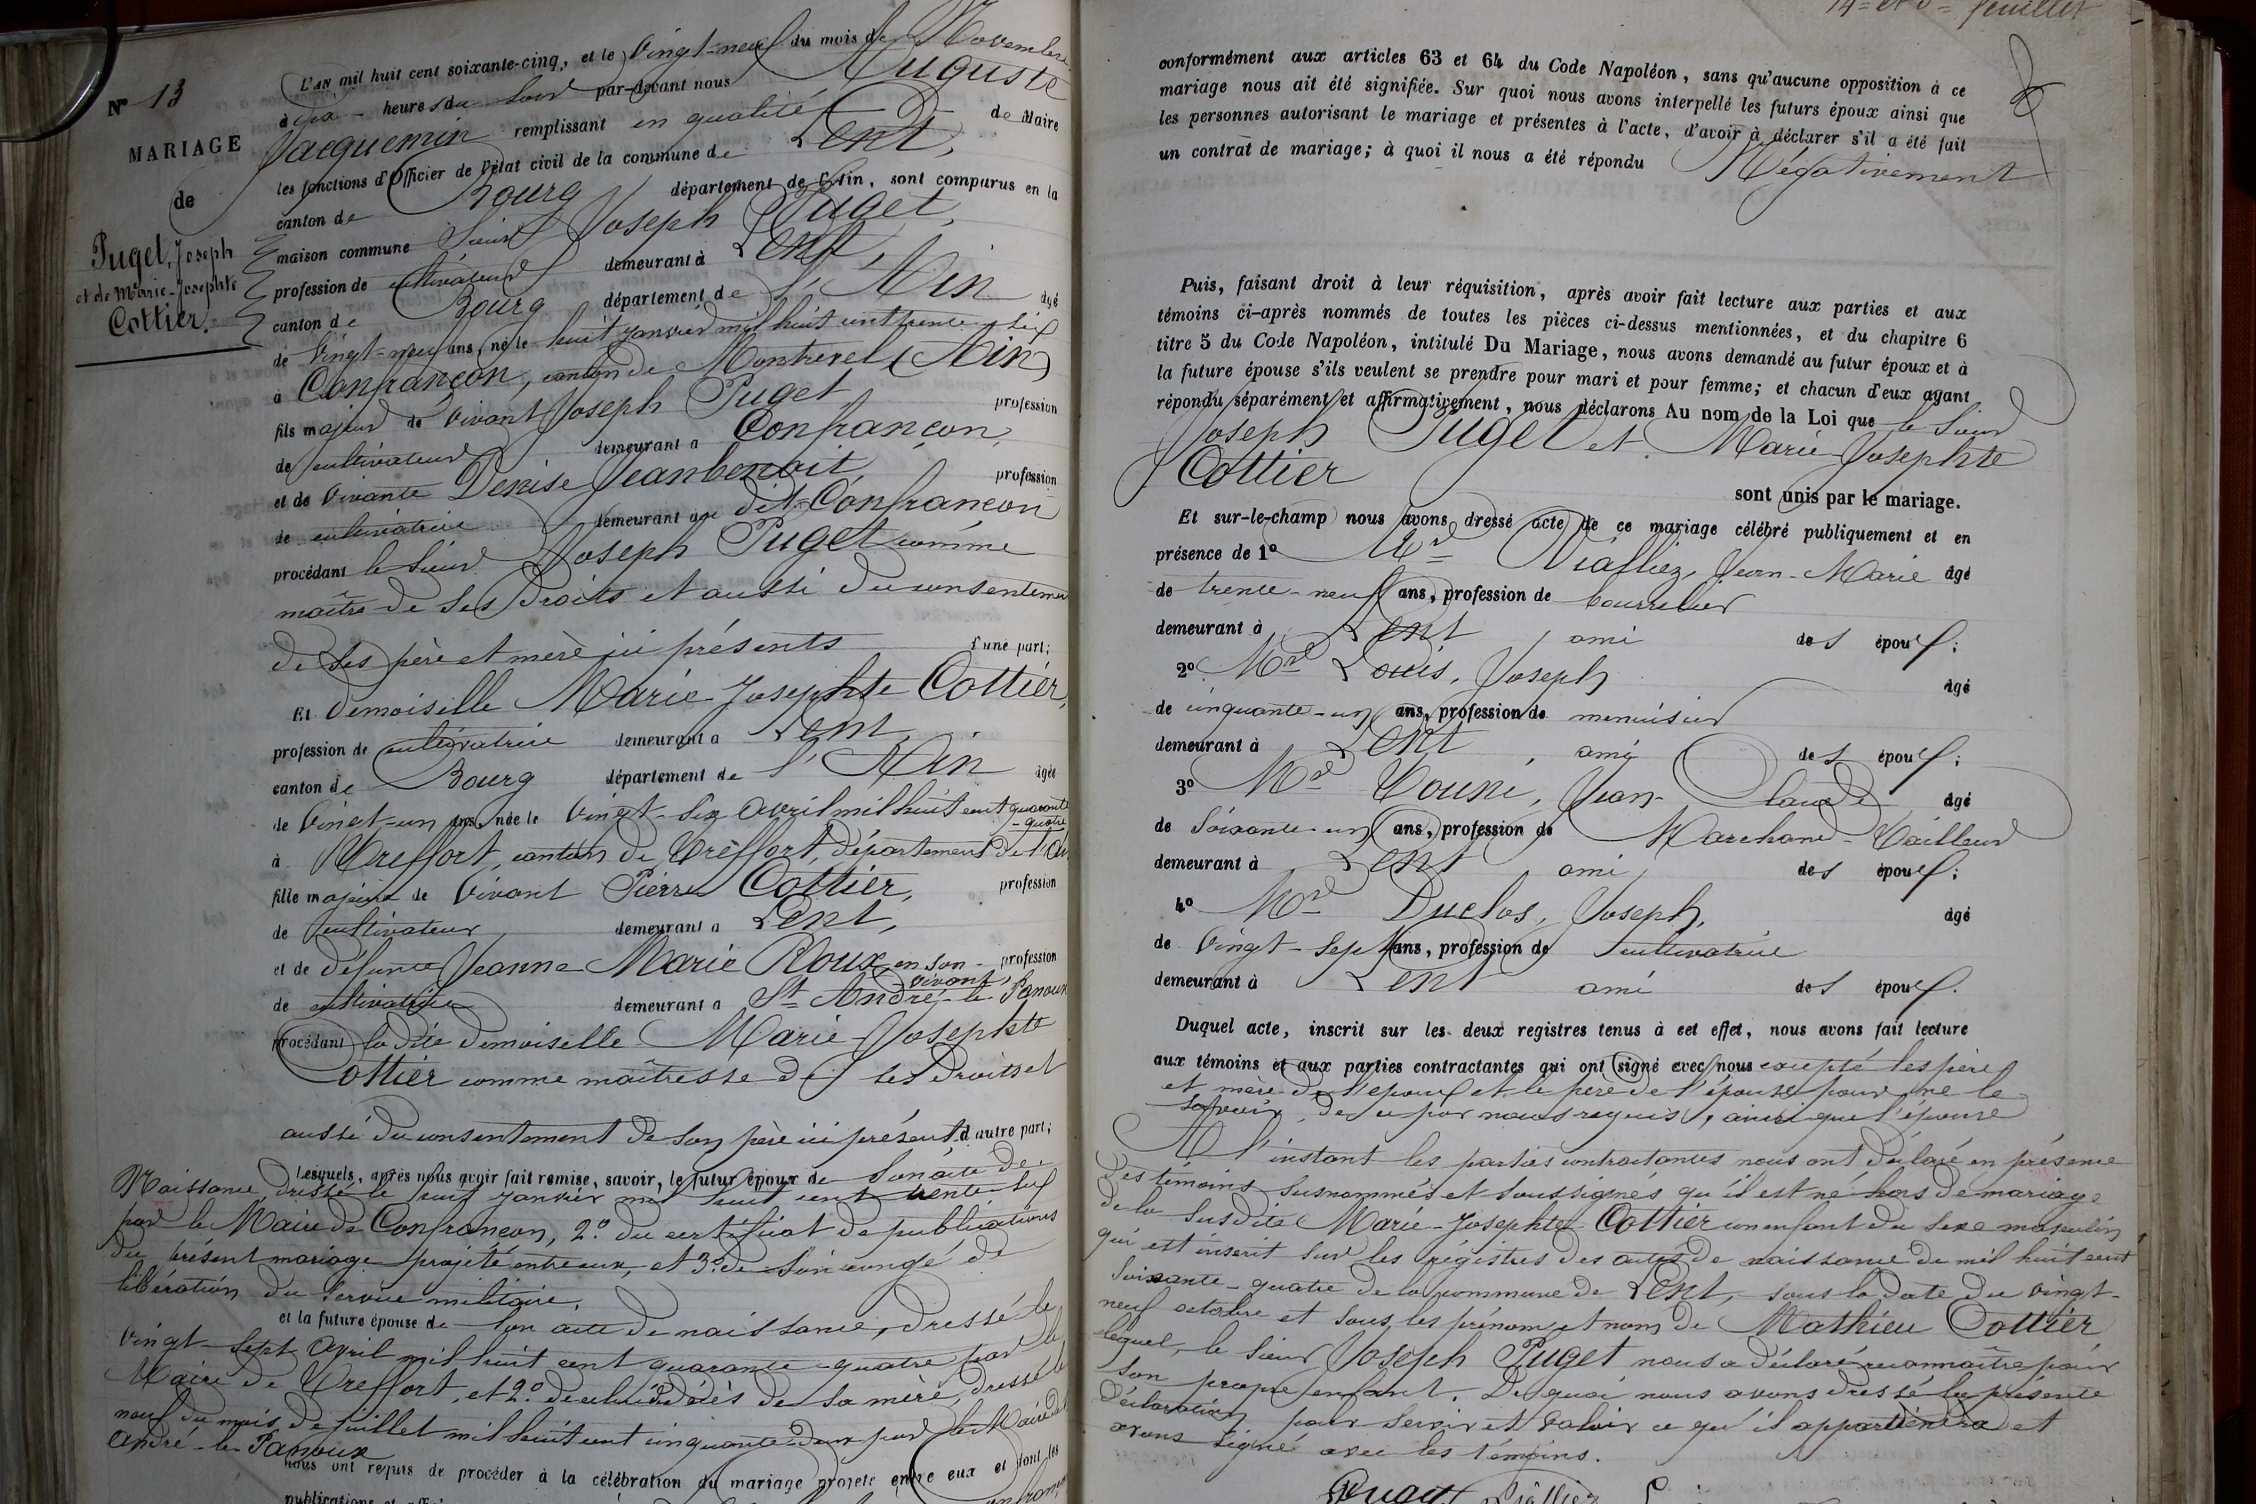 N° 13
MARIAGE
de
Puget, Joseph
et de Marie-Josephte
Cottier.
L'AN mil huit cent soixante-cinq, et le Vingt-neuf du mois de Novembre
à six heures du soir par-devant nous Auguste
Jacquemin remplissant en qualité de Maire
les fonctions d'Officier de l'état civil de la commune de Lent,
canton de Bourg département de l'Ain, sont comparus en la
maison commune Sieur Joseph Puget,
profession de cultivateur demeurant à Lent,
canton de Bourg département de l'Ain âgé
de Vingt-neuf ans, né le huit janvier mil huit cent trente-six
à Confrançon, canton de Montrevel (Ain)
fils majeur de vivant Joseph Puget profession
de cultivateur demeurant à Confrançon,
et de vivante Denise Jeanbenoit profession
de cultivatrice demeurant au dit Confrançon
procédant le Sieur Joseph Puget comme
maître de ses droits et aussi du consentement
de ses père et mère ici présents l'une part;
Et demoiselle Marie-Josephte Cottier,
profession de cultivatrice demeurant à Lent,
canton de Bourg département de l'Ain âgée
de Vingt-un ans, née le Vingt-six avril mil huit cent quarante
-quatre
à Treffort, canton de Treffort, département de l'Ain
fille majeure de vivant Pierre Cottier, profession
de cultivateur demeurant à Lent,
et de défunte Jeanne-Marie Roux en son profession
vivant,
de cultivatrice demeurant à St André-le-Panoux
procédant la dite demoiselle Marie-Josephte
Cottier comme maîtresse de ses droits et
aussi du consentement de son père ici présent d'autre part;
Lesquels, après nous avoir fait remise, savoir, le futur époux de son acte de
Naissance dressé le huit janvier mil huit cent trente-six
par le Maire de Confrançon, 2° du certificat de publications
du présent mariage projeté entre eux, et 3° de son congé de
libération du service militaire.
et la future épouse de son acte de naissance, dressé le
vingt-sept avril mil huit cent quarante-quatre par le
Maire de Treffort, et 2° de celui de décès de sa mère, dressé le
neuf du mois de juillet mil huit cent cinquante-deux par le Maire de St
André-le-Panoux
nous ont requis de procéder à la célébration du mariage projeté entre eux et dont les
publications
feuillet
conformément aux articles 63 et 64 du Code Napoléon, sans qu'aucune opposition à ce
mariage nous ait été signifiée. Sur quoi nous avons interpellé les futurs époux ainsi que
les personnes autorisant le mariage et présentes à l'acte, d'avoir à déclarer s'il a été fait
un contrat de mariage; à quoi il nous a été répondu Négativement
Puis, faisant droit à leur réquisition, après avoir fait lecture aux parties et aux
témoins ci-après nommés de toutes les pièces ci-dessus mentionnées, et du chapitre 6
titre 5 du Code Napoléon, intitulé Du Mariage, nous avons demandé au futur époux et à
la future épouse s'ils veulent se prendre pour mari et pour femme; et chacun d'eux ayant
répondu séparément et affirmativement, nous déclarons Au nom de la Loi que le Sieur
Joseph Puget et Marie-Josephte
Cottier
sont unis par le mariage.
Et sur-le-champ nous avons dressé acte de ce mariage célébré publiquement et en
présence de 1° Mr Vialliez, Jean-Marie âgé
de trente-neuf ans, profession de bourrelier
demeurant à Lent, ami des époux;
2° Mr Louis, Joseph âgé
de cinquante-un ans, profession de menuisier
demeurant à Lent, ami des époux;
3° Mr Jean-Claude âgé
de Soixante-un ans, profession de Marchand-Tailleur
demeurant à Lent ami des époux;
4° Mr Duclos, Joseph, âgé
de Vingt-sept ans, profession de cultivatrice
demeurant à Lent ami des époux.
Duquel acte, inscrit sur les deux registres tenus à cet effet, nous avons fait lecture
aux témoins et aux parties contractantes qui ont signé avec nous excepté les père
et mère de l'époux et le père de l'épouse pour ne le
savoir, de ce par nous requis, ainsi que l'épouse
A l'instant les parties contractantes nous ont déclaré en présence
des témoins susnommés et soussignés qu'il est né hors de mariage
de la susdite Marie-Josephte Cottier un enfant du sexe masculin
qui est inscrit sur les régistres des actes de naissance de mil huit cent
soixante-quatre de la commune de Lent, sous la date du vingt-
neuf octobre et sous les prénom et nom de Mathieu Cottier
lequel, le sieur Joseph Puget nous a déclaré reconnaître pour
son propre enfant. De quoi nous avons dressé la présente
déclaration pour servir et valoir ce qu'il appartiendra et
avons signé avec les témoins.
Puget Vialliez